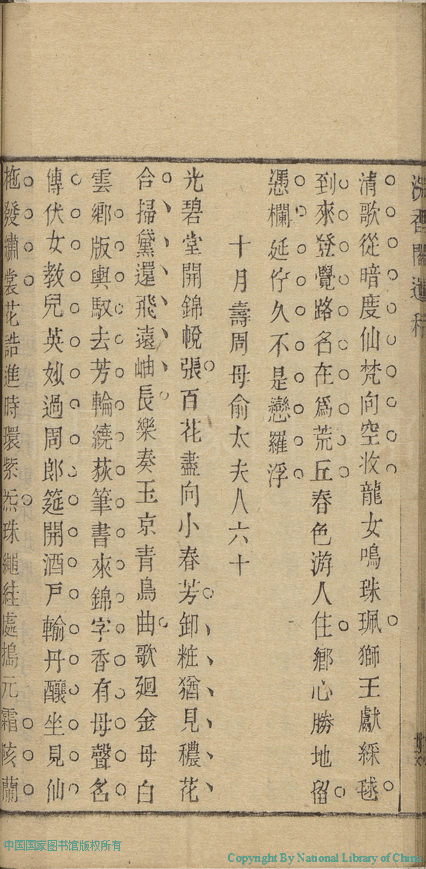 清歌從暗度仙梵向空收龍女鳴珠珮獅王獻綵毬
到來登覺路名在爲荒丘春色游人住鄉心勝地留
憑欄延佇久不是戀羅浮
十月壽周母俞太夫人六十
光碧堂開錦帨張百花盡向小春芳卸粧猶見穠花
合掃黛還飛遠岫長樂奏玉京青鳥曲歌廻金母白
雲鄉版輿馭去芳輪繞荻筆書來錦字香有母聲名
傳伏女教兒英妙過周郎筵開酒戸輸丹釀坐見仙
桃發繡裳花誥進時環紫炁珠繩結處搗元霜陔蘭
中国国家图书馆版权所有
Copyright By National Library of China